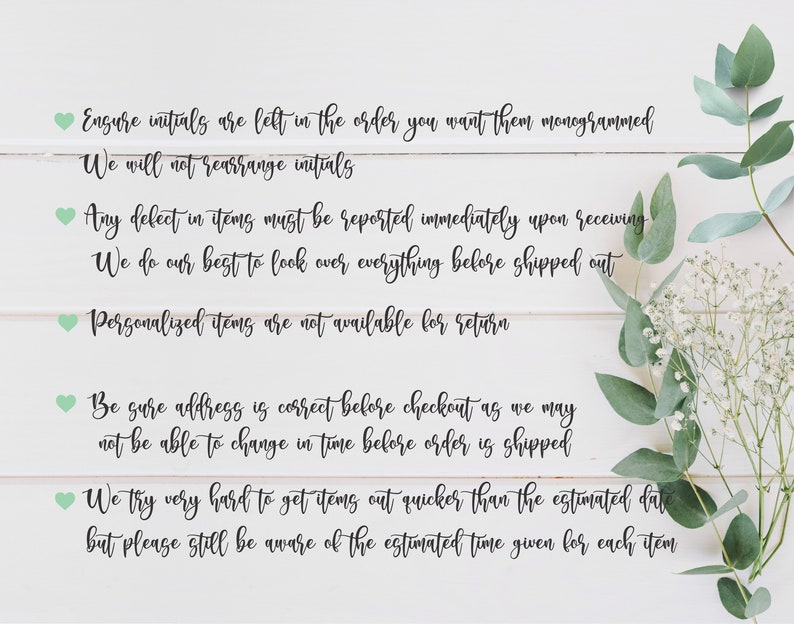 Ensure initials are left in the order you want them monogrammed
We will not rearrange initials
Any defect in items must be reported immediately upon receiving
We do our best to look over everything before shipped out
Personalized items are not available for return
Be sure address is correct before checkout as we may
not be able to change in time before order is shipped
We try very hard to get items out quicker than the estimated date
but please still be aware of the estimated time given for each item